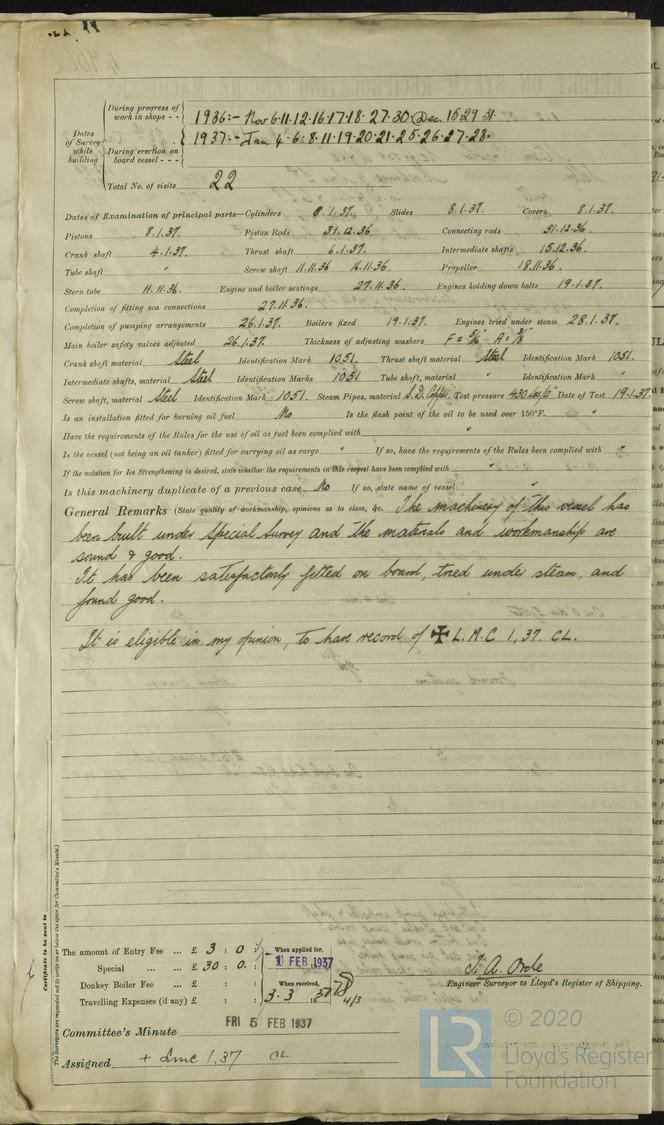 Dates of Survey while building
During progress of work in shops - - 1936:- Nov 6.11.12.16.17.18.27.30. Dec. 15 29.31.
During erection on board vessel - - - 1937:- Jan 4.6.8.11.19.20.21.25.26.27.28.
Total No. of visits 22
Dates of Examination of principal parts—Cylinders 8.1.37. Slides 8.1.37. Covers 8.1.37.
Pistons 8.1.37. Piston Rods 31.12.36 Connecting rods 31.12.36.
Crank shaft 4.1.37. Thrust shaft 6.1.37. Intermediate shafts 15.12.36.
Tube shaft " Screw shaft 11.11.36 16.11.36. Propeller 18.11.36.
Stern tube 11.11.36. Engine and boiler seatings 27.11.36. Engines holding down bolts 19.1.37.
Completion of fitting sea connections 27.11.36.
Completion of pumping arrangements 26.1.37. Boilers fixed 19.1.37. Engines tried under steam 28.1.37.
Main boiler safety valves adjusted 26.1.37. Thickness of adjusting washers F = 5/16" A = 3/8"
Crank shaft material Steel Identification Mark 1051. Thrust shaft material Steel Identification Mark 1051.
Intermediate shafts, material Steel Identification Marks 1051 Tube shaft, material " Identification Mark "
Screw shaft, material Steel Identification Mark 1051. Steam Pipes, material S.D. Copper Test pressure 430 lbs/□" Date of Test 19.1.37.
Is an installation fitted for burning oil fuel No Is the flash point of the oil to be used over 150°F. "
Have the requirements of the Rules for the use of oil as fuel been complied with "
Is the vessel (not being an oil tanker) fitted for carrying oil as cargo " If so, have the requirements of the Rules been complied with "
If the notation for Ice Strengthening is desired, state whether the requirements in this respect have been complied with "
Is this machinery duplicate of a previous case No If so, state name of vessel "
General Remarks (State quality of workmanship, opinions as to class, &c. The machinery of this vessel has
been built under Special Survey and the materials and workmanship are
sound & good.
It has been satisfactorily fitted on board, tried under steam, and
found good.
It is eligible in my opinion, to have record of ✠ L.M.C 1,37. CL.
Certificate to be sent to
The Surveyors are requested not to write on or below the space for Committee's Minute.)
The amount of Entry Fee ... £ 3 : 0 :
Special ... ... £ 30 : 0. :
Donkey Boiler Fee ... £ : :
Travelling Expenses (if any) £ : :
When applied for,
1 FEB 1937
When received,
3.3 1937
4/3
T. A. Orde
Engineer Surveyor to Lloyd's Register of Shipping.
Committee's Minute FRI 5 FEB 1937
Assigned + Lmc 1,37 CL
LR © 2020
Lloyd's Register
Foundation